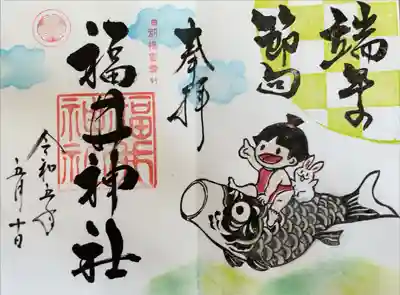 端午の
節句
奉拝
福井神社
令和五年
五月十日